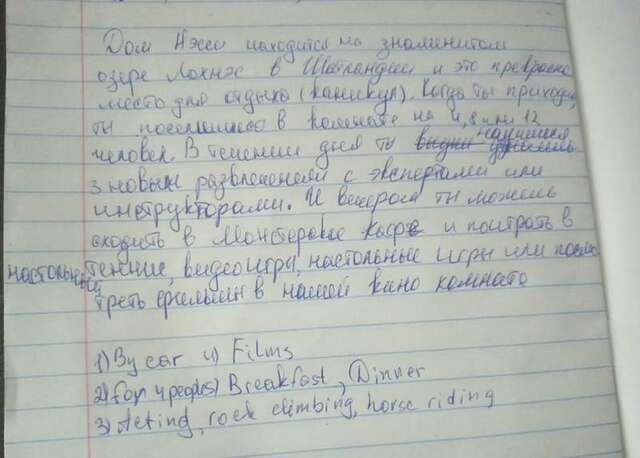 Дом Нэси находится на знаменитом
озере Лохнэс в Шотландии и это прекрасно
место для отдыха (каникул). Когда ты приходиш,
ты поселишься в комнате на 4, 8 или 12
человек. В течении дня ты научишся
3 новым развлеченелям с экспертами или
инструкторами. И вечером ты можешь
сходить в Монстерское кафе и поиграть в
настольный теннис, видеоигры, настольные игры или посмо
треть фильмы в нашей кино комнате
1) By car 4) Films
2) For 4 peoples) Breakfast, Dinner
3) Acting, rock climbing, horse riding